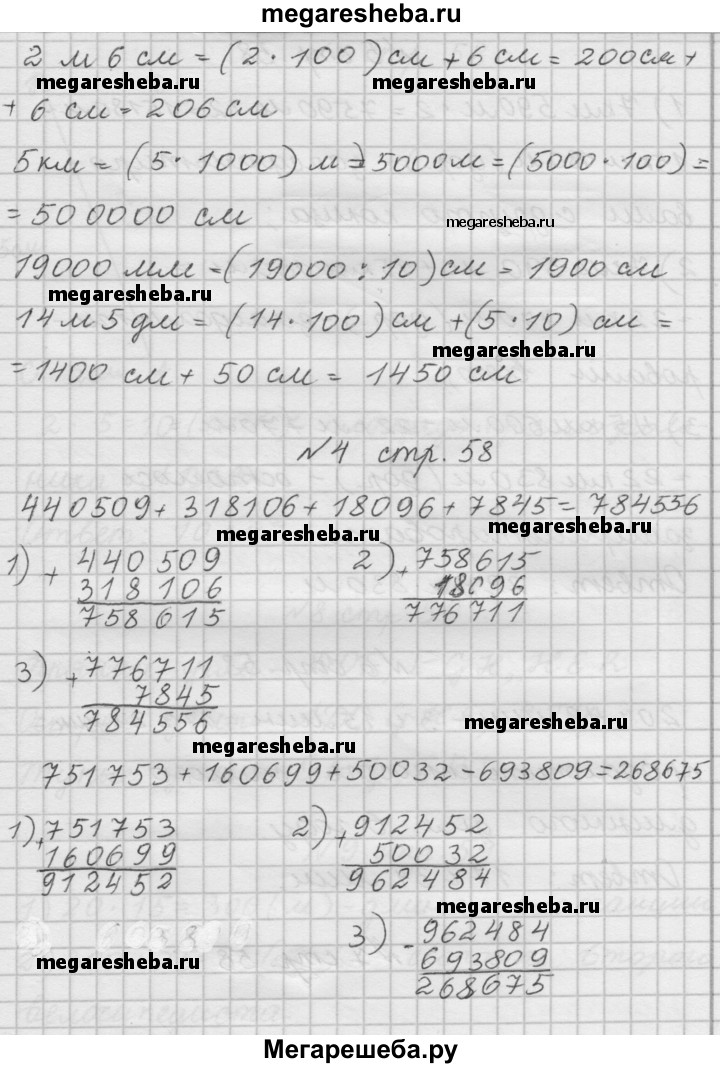 megaresheba.ru
2 м 6 см = (2 · 100) см + 6 см = 200 см +
megaresheba.ru megaresheba.ru
+ 6 см = 206 см
5 км = (5 · 1000) м = 5000 м = (5000 · 100) =
= 500000 см
megaresheba.ru
19000 мм = (19000 : 10) см = 1900 см
megaresheba.ru
14 м 5 дм = (14 · 100) см + (5 · 10) см =
megaresheba.ru
= 1400 см + 50 см = 1450 см
№4 стр. 58
440509 + 318106 + 18096 + 7845 = 784556
megaresheba.ru megaresheba.ru
1) + 440 509 2) + 758615
318 106 18096
758 615 776 711
3) + 776711
7845
784556
megaresheba.ru
megaresheba.ru
751753 + 160699 + 50032 - 693809 = 268675
1) + 751753 2) + 912452
160699 50032
912452 962484
megaresheba.ru
3) - 962484
693809
268675
megaresheba.ru
Мегарешеба.ру